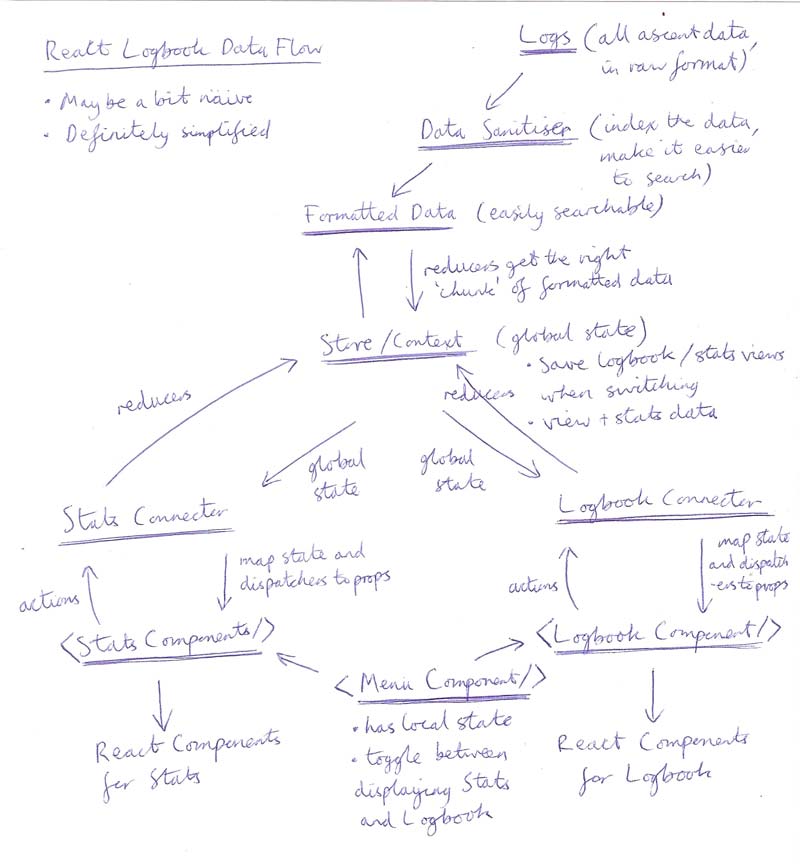 React Logbook Data Flow
• Maybe a bit naive
• Definitely simplified
Logs (all ascent data,
in raw format)
Data Sanitiser (index the data,
make it easier
to search)
Formatted Data (easily searchable)
reducers get the right
'chunk' of formatted data
Store/Context (global state)
• save logbook/stats views
when switching
• view + stats data
reducers
reducers
global
state
global
state
Stats Connecter
Logbook Connecter
actions
map state and
dispatchers to props
actions
map state
and dispatch
-ers to props
<Stats Components/>
<Logbook Component/>
<Menu Component/>
• has local state
• toggle between
displaying Stats
and Logbook
React Components
for Stats
React Components
for Logbook